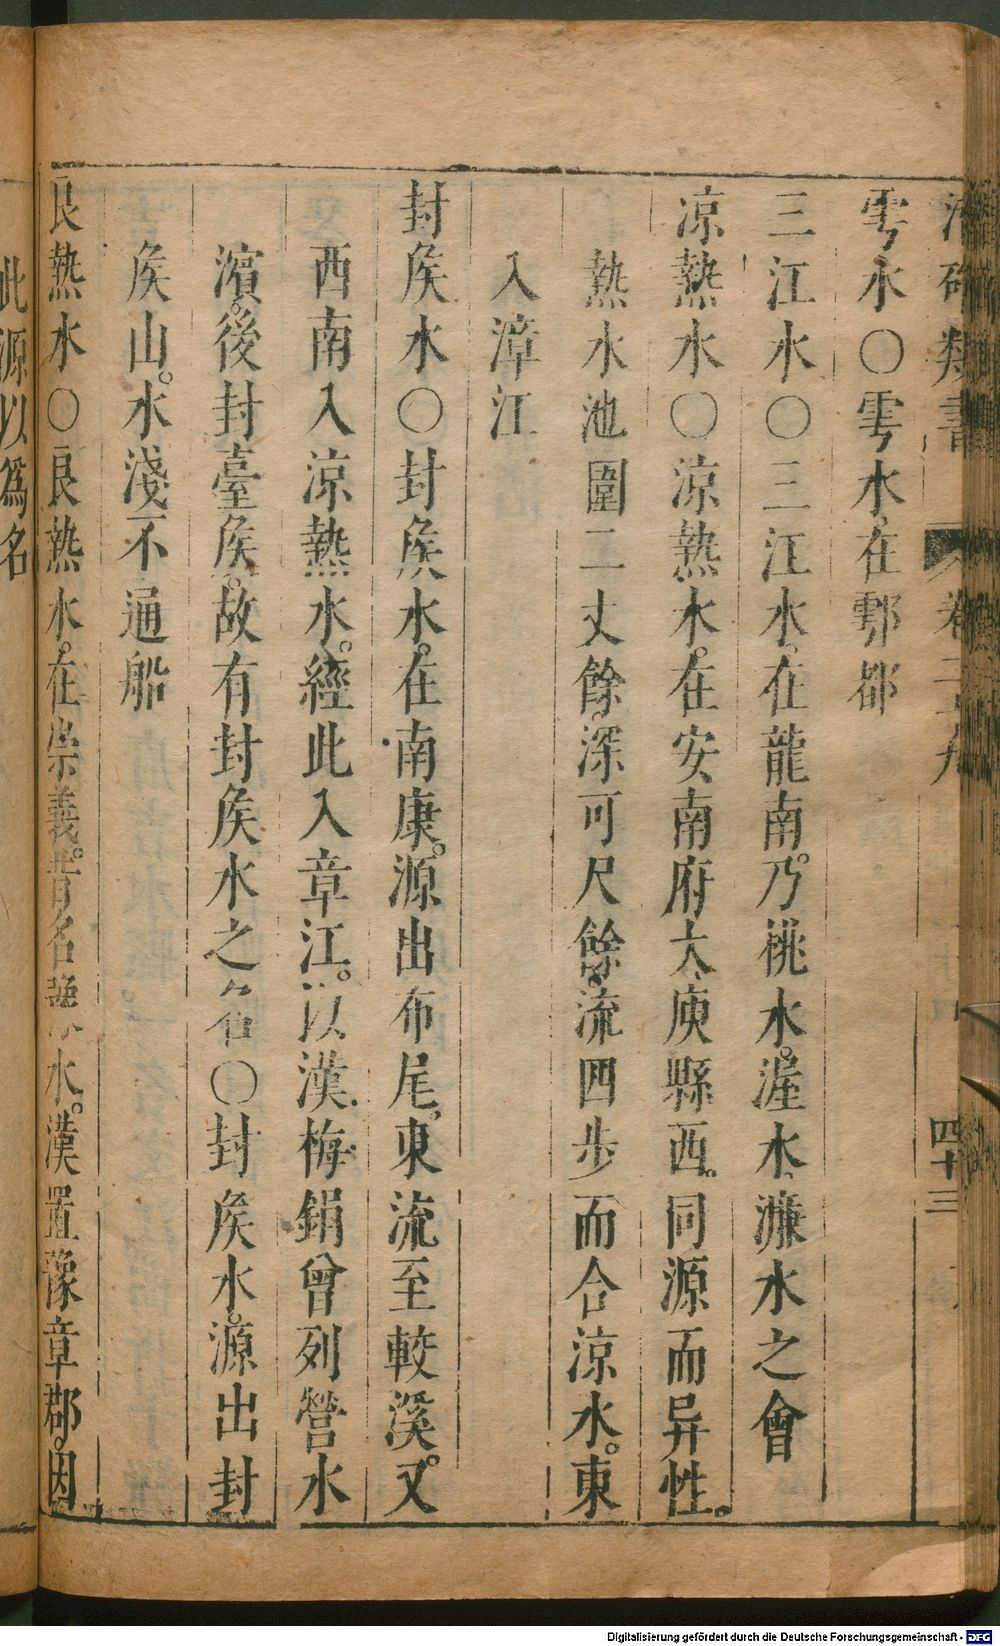 類書 卷二十九 四十三
雩水○雩水在鄠都
三江水○三江水在龍南乃桃水渥水濂水之會
凉熱水○涼熱水在安南府大庾縣西同源而异性
熱水池圍二丈餘深可尺餘流四步而合涼水東
入漳江
封矦水○封矦水在南康源出布尾東流至較溪又
西南入涼熱水經此入章江以漢梅鋗曾列營水
濵後封臺矦故有封矦水之名○封矦水源出封
矦山水淺不通船
良熱水○良熱水在崇義昔名 水漢置豫章郡因
此源以爲名
Digitalisierung gefördert durch die Deutsche Forschungsgemeinschaft - DFG